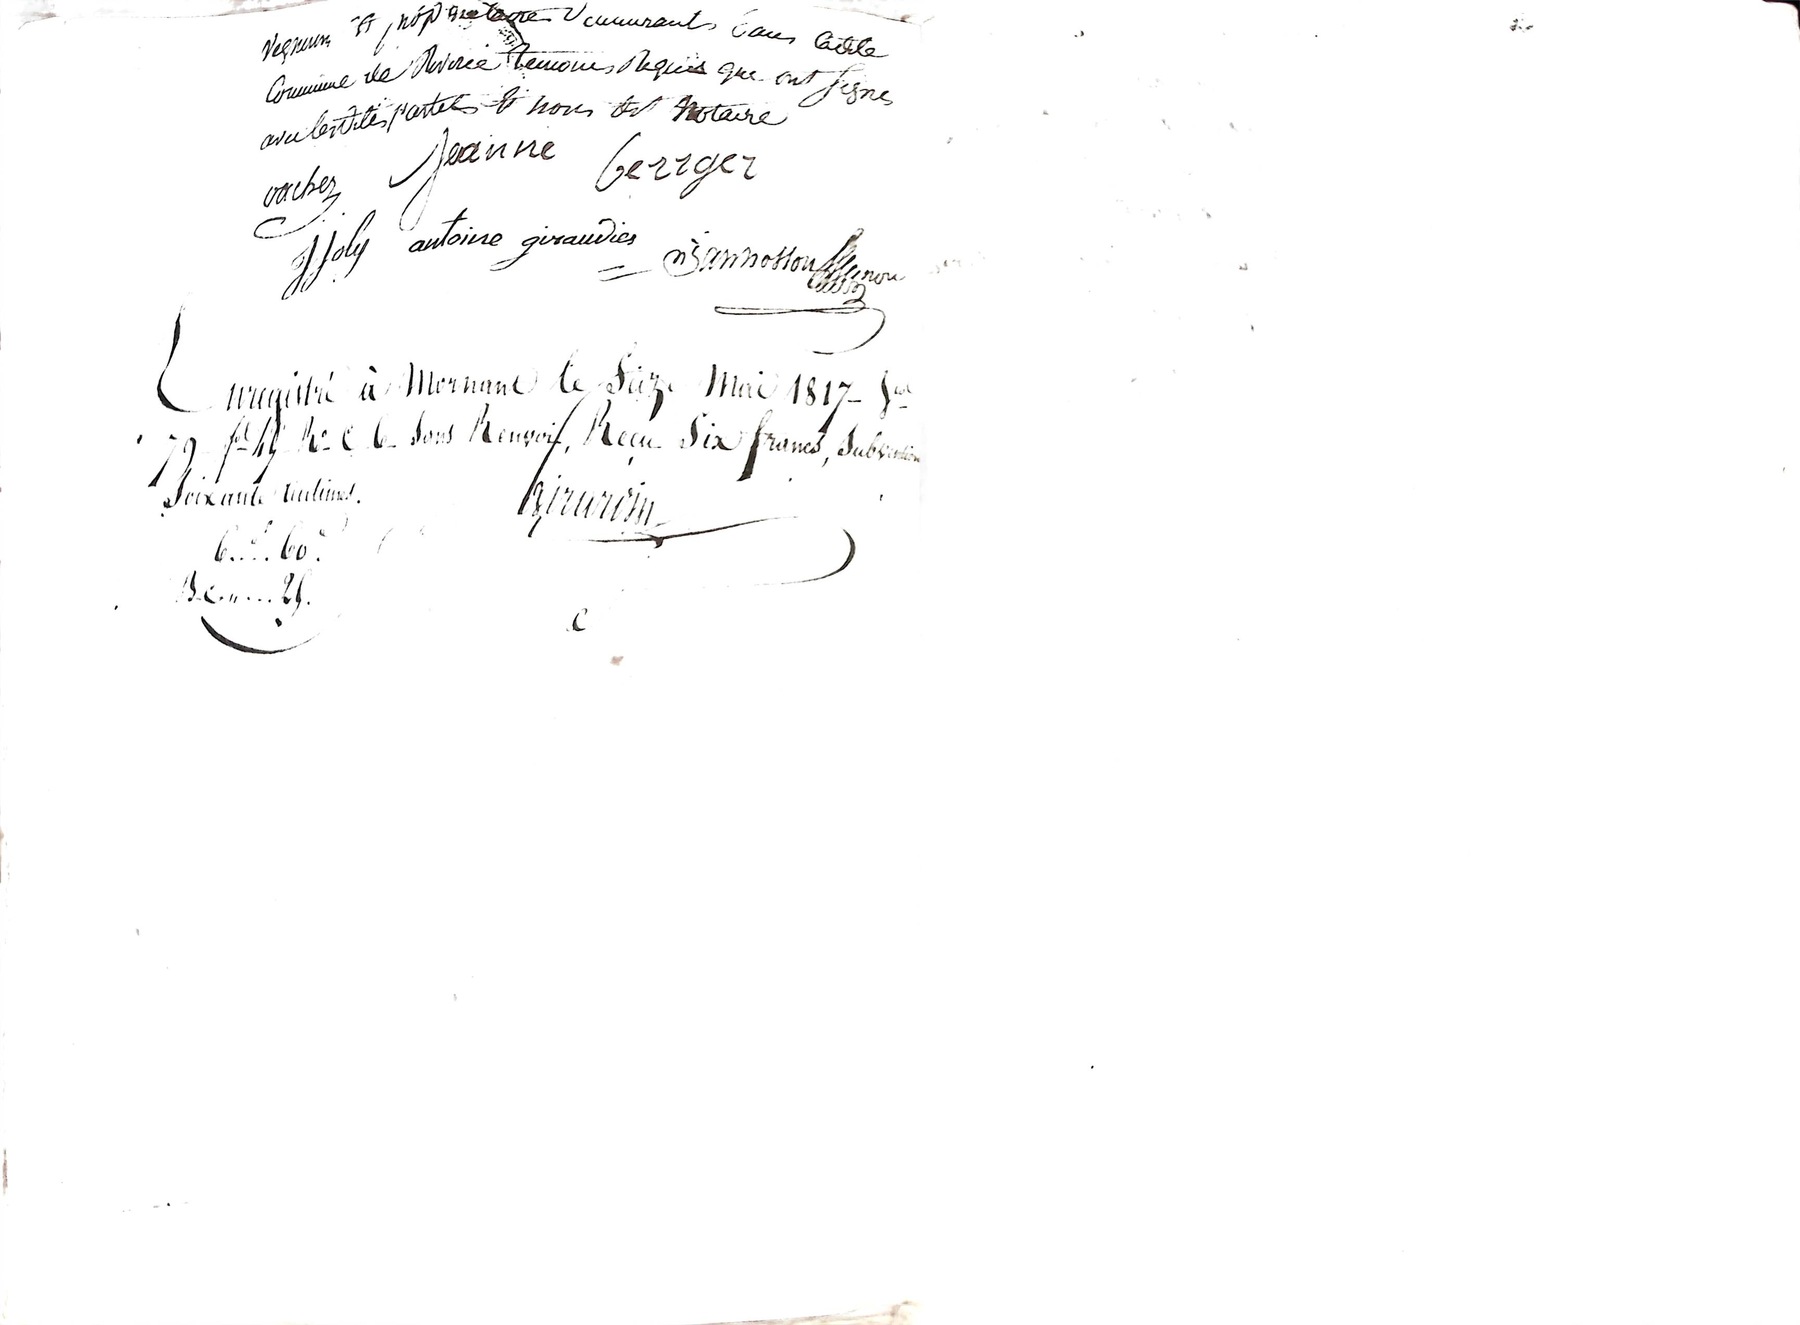 et propriétaires Demeurants dans ladite
Commune de Riverie temoins Requis que ont signes
avec lesdites parties & nous dit Notaire
vachez Jeanne berrger
JJoly antoine giraudier njannosson
Enregistré à Mornant le Seize Mai 1817
79 Ro C 6 sans Renvoi, Reçu Six francs, Subvention
Soixante centimes.
6 f 60 c
25.